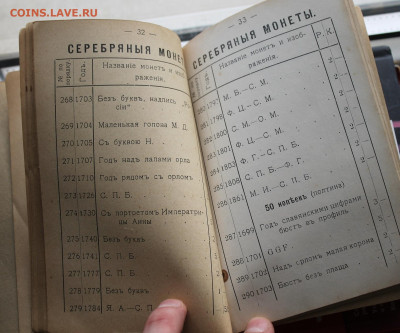 COINS.LAVE.RU
— 32 —
СЕРЕБРЯНЫЯ МОНЕТЫ
№ по порядку Годъ. Названіе монетъ и изображенія.
268 1703 Безъ буквъ, надпись
269 1704 Маленькая голова М. Д.
270 1705 Съ буквою Н.
271 1707 Годъ надъ лапами орла
272 1710 Годъ рядомъ съ орломъ
273 1726 С. П. Б.
274 1730 Съ портретомъ Императрицы Анны
275 1740 Безъ буквъ
276 1741 С. П. Б.
277 1777 С. П. Б.
278 1779 Безъ буквъ
279 1784 Я. А.—С. П.
— 33 —
СЕРЕБРЯНЫЯ МОНЕТЫ.
Названіе монетъ и изображенія. Р. К.
1797 М. Б.—С. М.
1798 Ф. Ц.—С. М.
1800 С. М.—О. М.
283 1801 Ф. Ц.—С. М.
284 1803 Ф. Г.—С. П. Б.
285 1808 С. П. Б.—Ф. Г.
286 1861 М. И.—С. П. Б.
50 копѣекъ (полтина)
287 1699 Годъ славянскими цифрами бюстъ въ профиль
288 1701
289 1702 Надъ орломъ малая корона
290 1703 Бюстъ безъ плаща